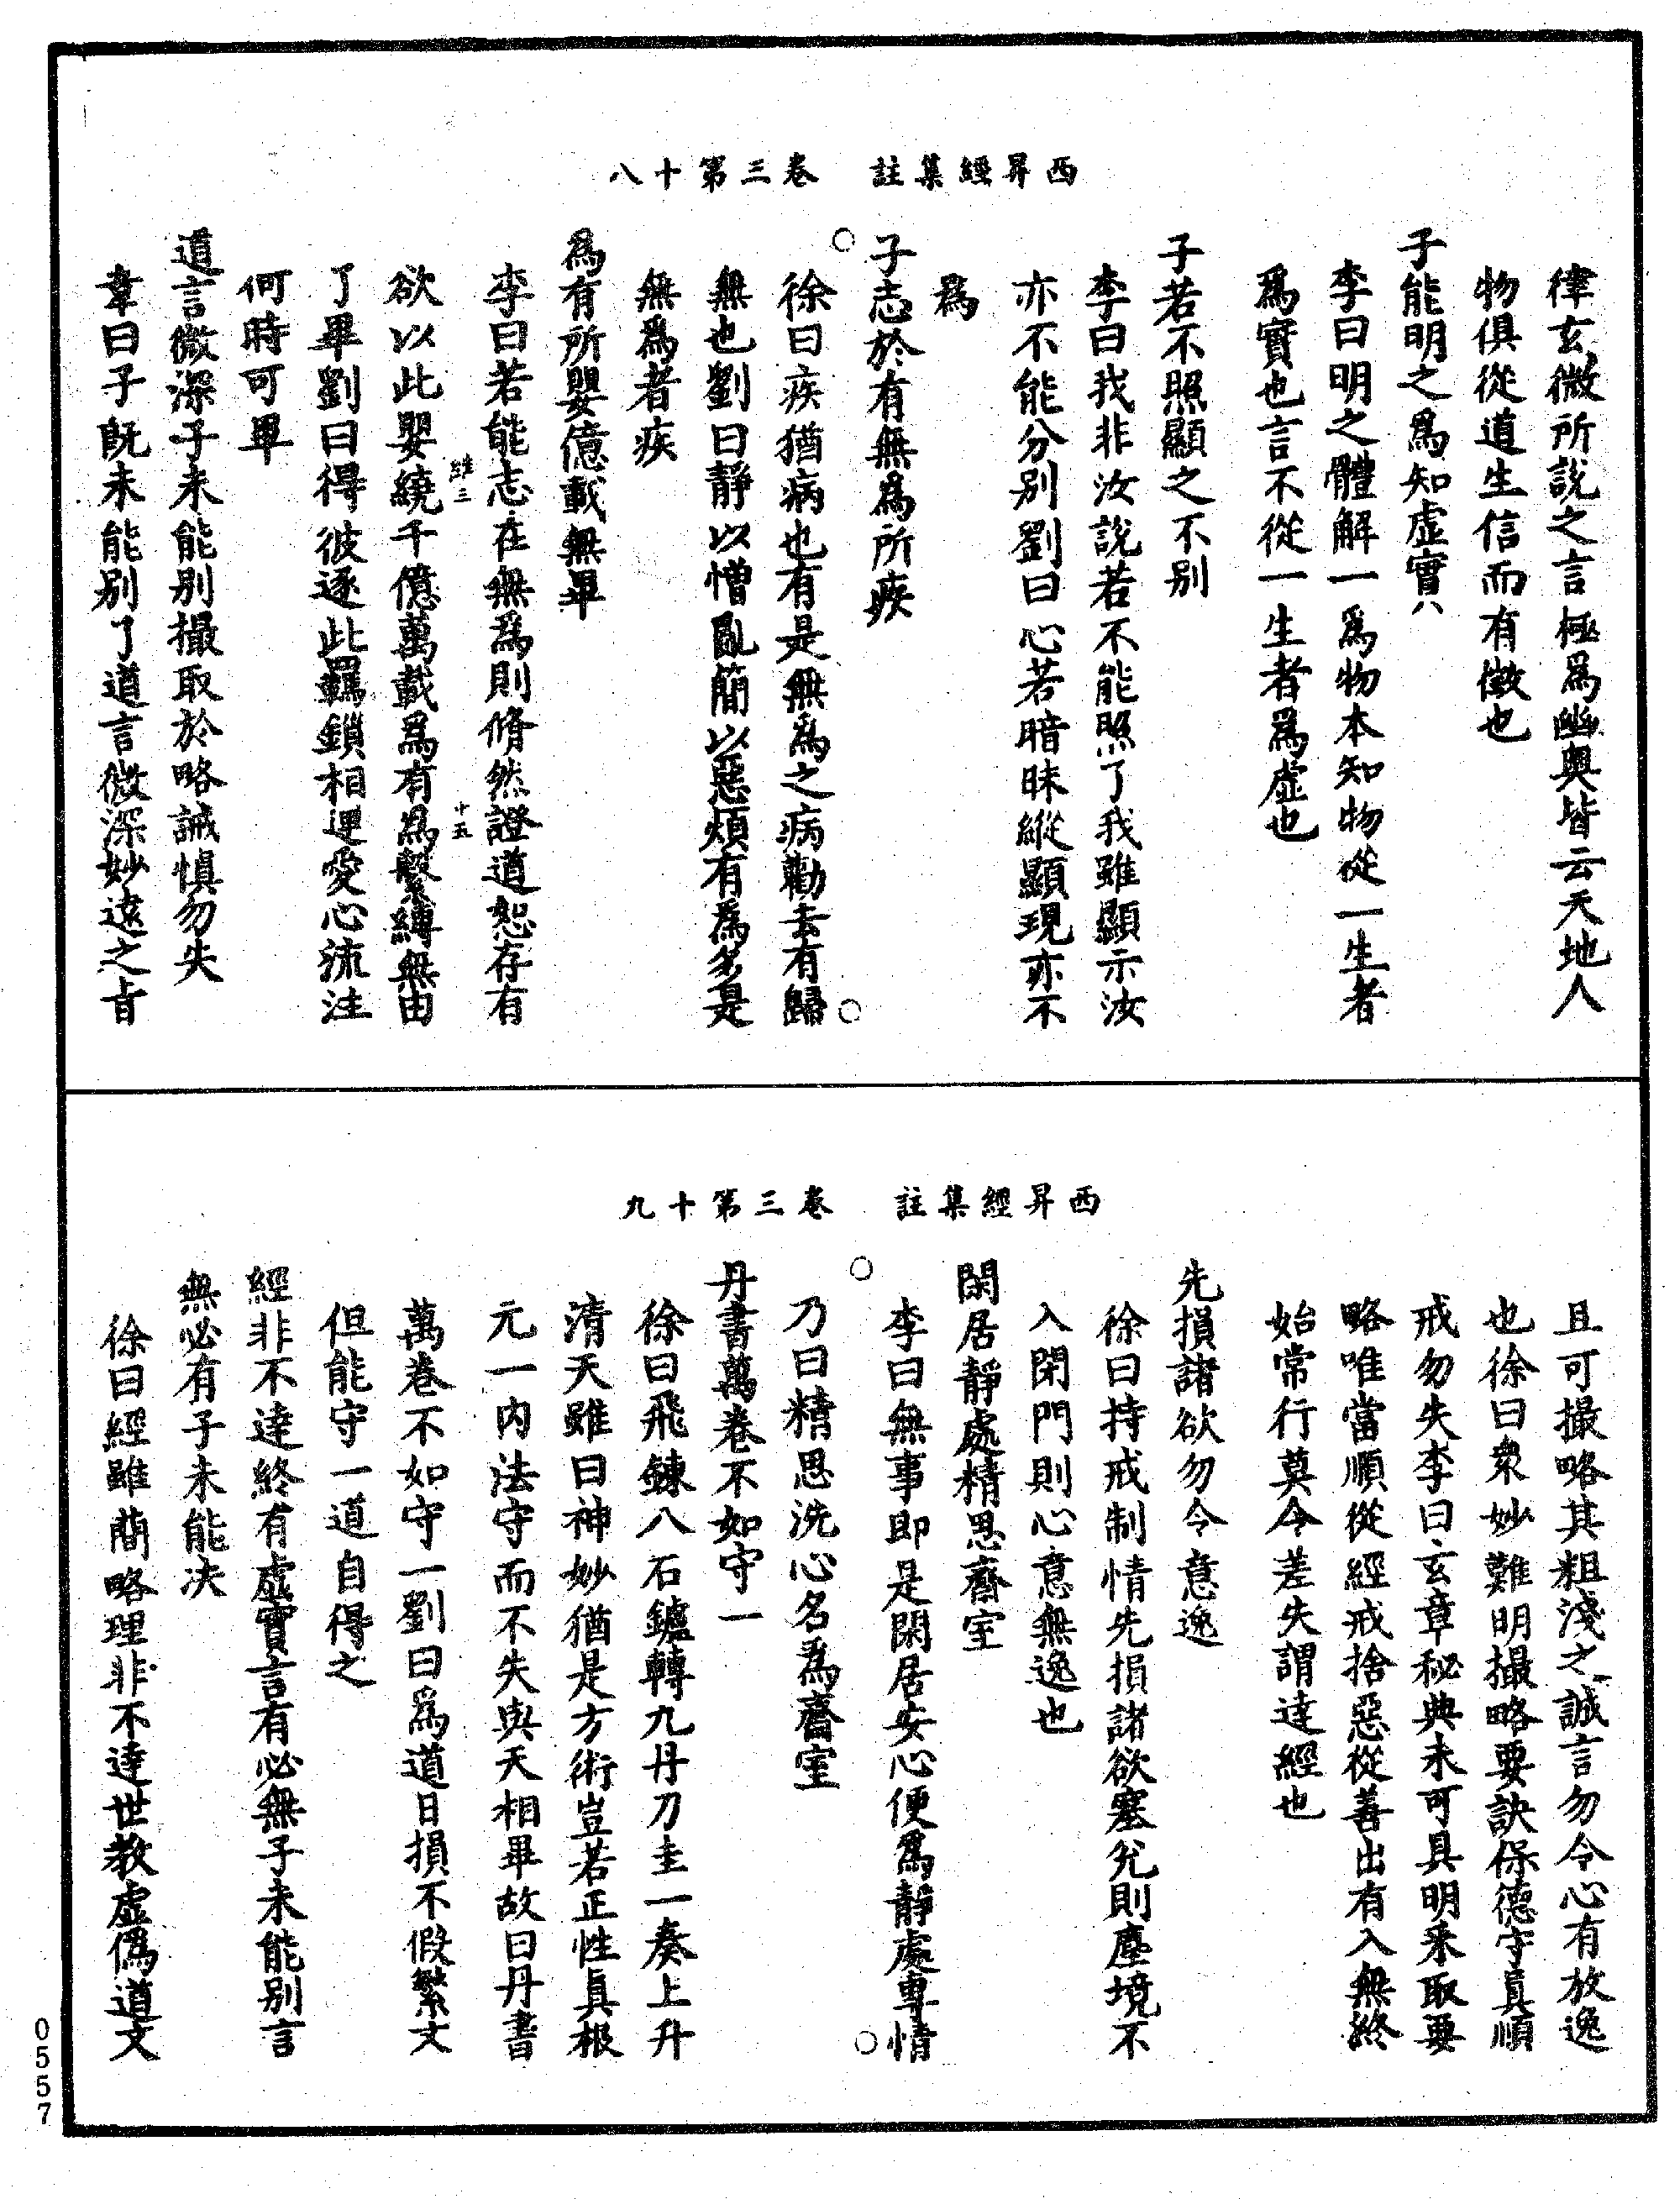 西昇經集註　卷三第十八
律玄微所說之言極爲幽奥皆云天地人
物俱從道生信而有徵也
子能明之爲知虛實
李曰明之體解一爲物本知物從一生者
爲實也言不從一生者爲虛也
子若不照顯之不别
李曰我非汝說若不能照了我雖顯示汝
亦不能分别劉曰心若暗昧縱顯現亦不
爲
子志於有無爲所疾
徐曰疾猶病也有是無爲之病勸去有歸
無也劉曰靜以憎亂簡以惡煩有爲多是
無爲者疾
爲有所嬰億載無畢
李曰若能志在無爲則脩然證道恕存有
維三　十五
欲以此嬰繞千億萬載爲有爲繫縛無由
了畢劉曰得彼逐此羈鎖相連愛心流注
何時可畢
道言微深子未能别撮取於略誡慎勿失
韋曰子既未能别了道言微深妙遠之旨
西昇經集註　卷三第十九
且可撮略其粗淺之誠言勿令心有放逸
也徐曰衆妙難明撮略要訣保德守真順
戒勿失李曰玄章秘典未可具明釆取要
略唯當順從經戒捨惡從善出有入無終
始常行莫令差失謂達經也
先損諸欲勿令意逸
徐曰持戒制情先損諸欲塞兊則塵境不
入閉門則心意無逸也
閑居靜處精思齋室
李曰無事即是閑居安心便爲靜處專情
乃曰精思洗心名爲齋室
丹書萬卷不如守一
徐曰飛鍊八石鑪轉九丹刀圭一奏上升
清天雖曰神妙猶是方術豈若正性真根
元一内法守而不失與天相畢故曰丹書
萬卷不如守一劉曰爲道日損不假繁文
但能守一道自得之
經非不達終有虛實言有必無子未能别言
無必有子未能决
徐曰經雖簡略理非不達世教虛僞道文
0557